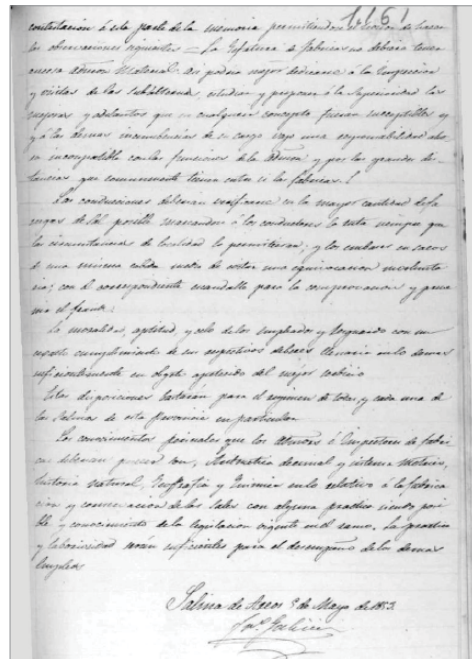 1,161
contestacion á esta parte de la memoria permitiendose el de hacer
las observaciones siguientes = La Gefatura de Fabricas no debiera tener
ninguna Admon Material. Asi podria mejor dedicarse á la Inspeccion
y visitas de las Subalternas, estudiar y proponer á la Superioridad las
mejoras y adelantos que en cualquier concepto fueran susceptibles y
y á las demas incumbencias de su cargo bajo una responsabilidad
incompatible con las funciones de la Admon y por las grandes dis-
tancias que comunmente tienen entre si las fabricas.
Las conducciones deberian verificarse en la mayor cantidad de fa-
negas de Sal posible marcandose á los conductores la ruta siempre que
las circunstancias de localidad lo permitieran, y los embases en sacos
de una misma cabida medio de evitar una equivocacion involunta
ria; con el correspondiente para la comprovacion y
el fraude.
La moralidad, aptitud, y celo de los empleados y logrando con un
exacto cumplimiento de sus respectivos deberes llenaria en lo demas
suficientemente un objeto apetecido del mejor servicio
Estas disposiciones bastarán para el regimen de todas y cada una de
las Salinas de esta Provincia en particular
Los conocimientos periciales que los Admores é Inspectores de fabri
cas deberian poseer son, Aritmetica decimal y sistema Metrico,
historia natural, y Quimica en lo relativo á la fabrica
cion y conservacion de las Sales con alguna practica siendo posi
ble y conocimiento de la legislacion vigente en el ramo. La practica
y laboriosidad serán suficientes para el desempeño de los demas
Empleos
Salina de 9 de Mayo de 1853.